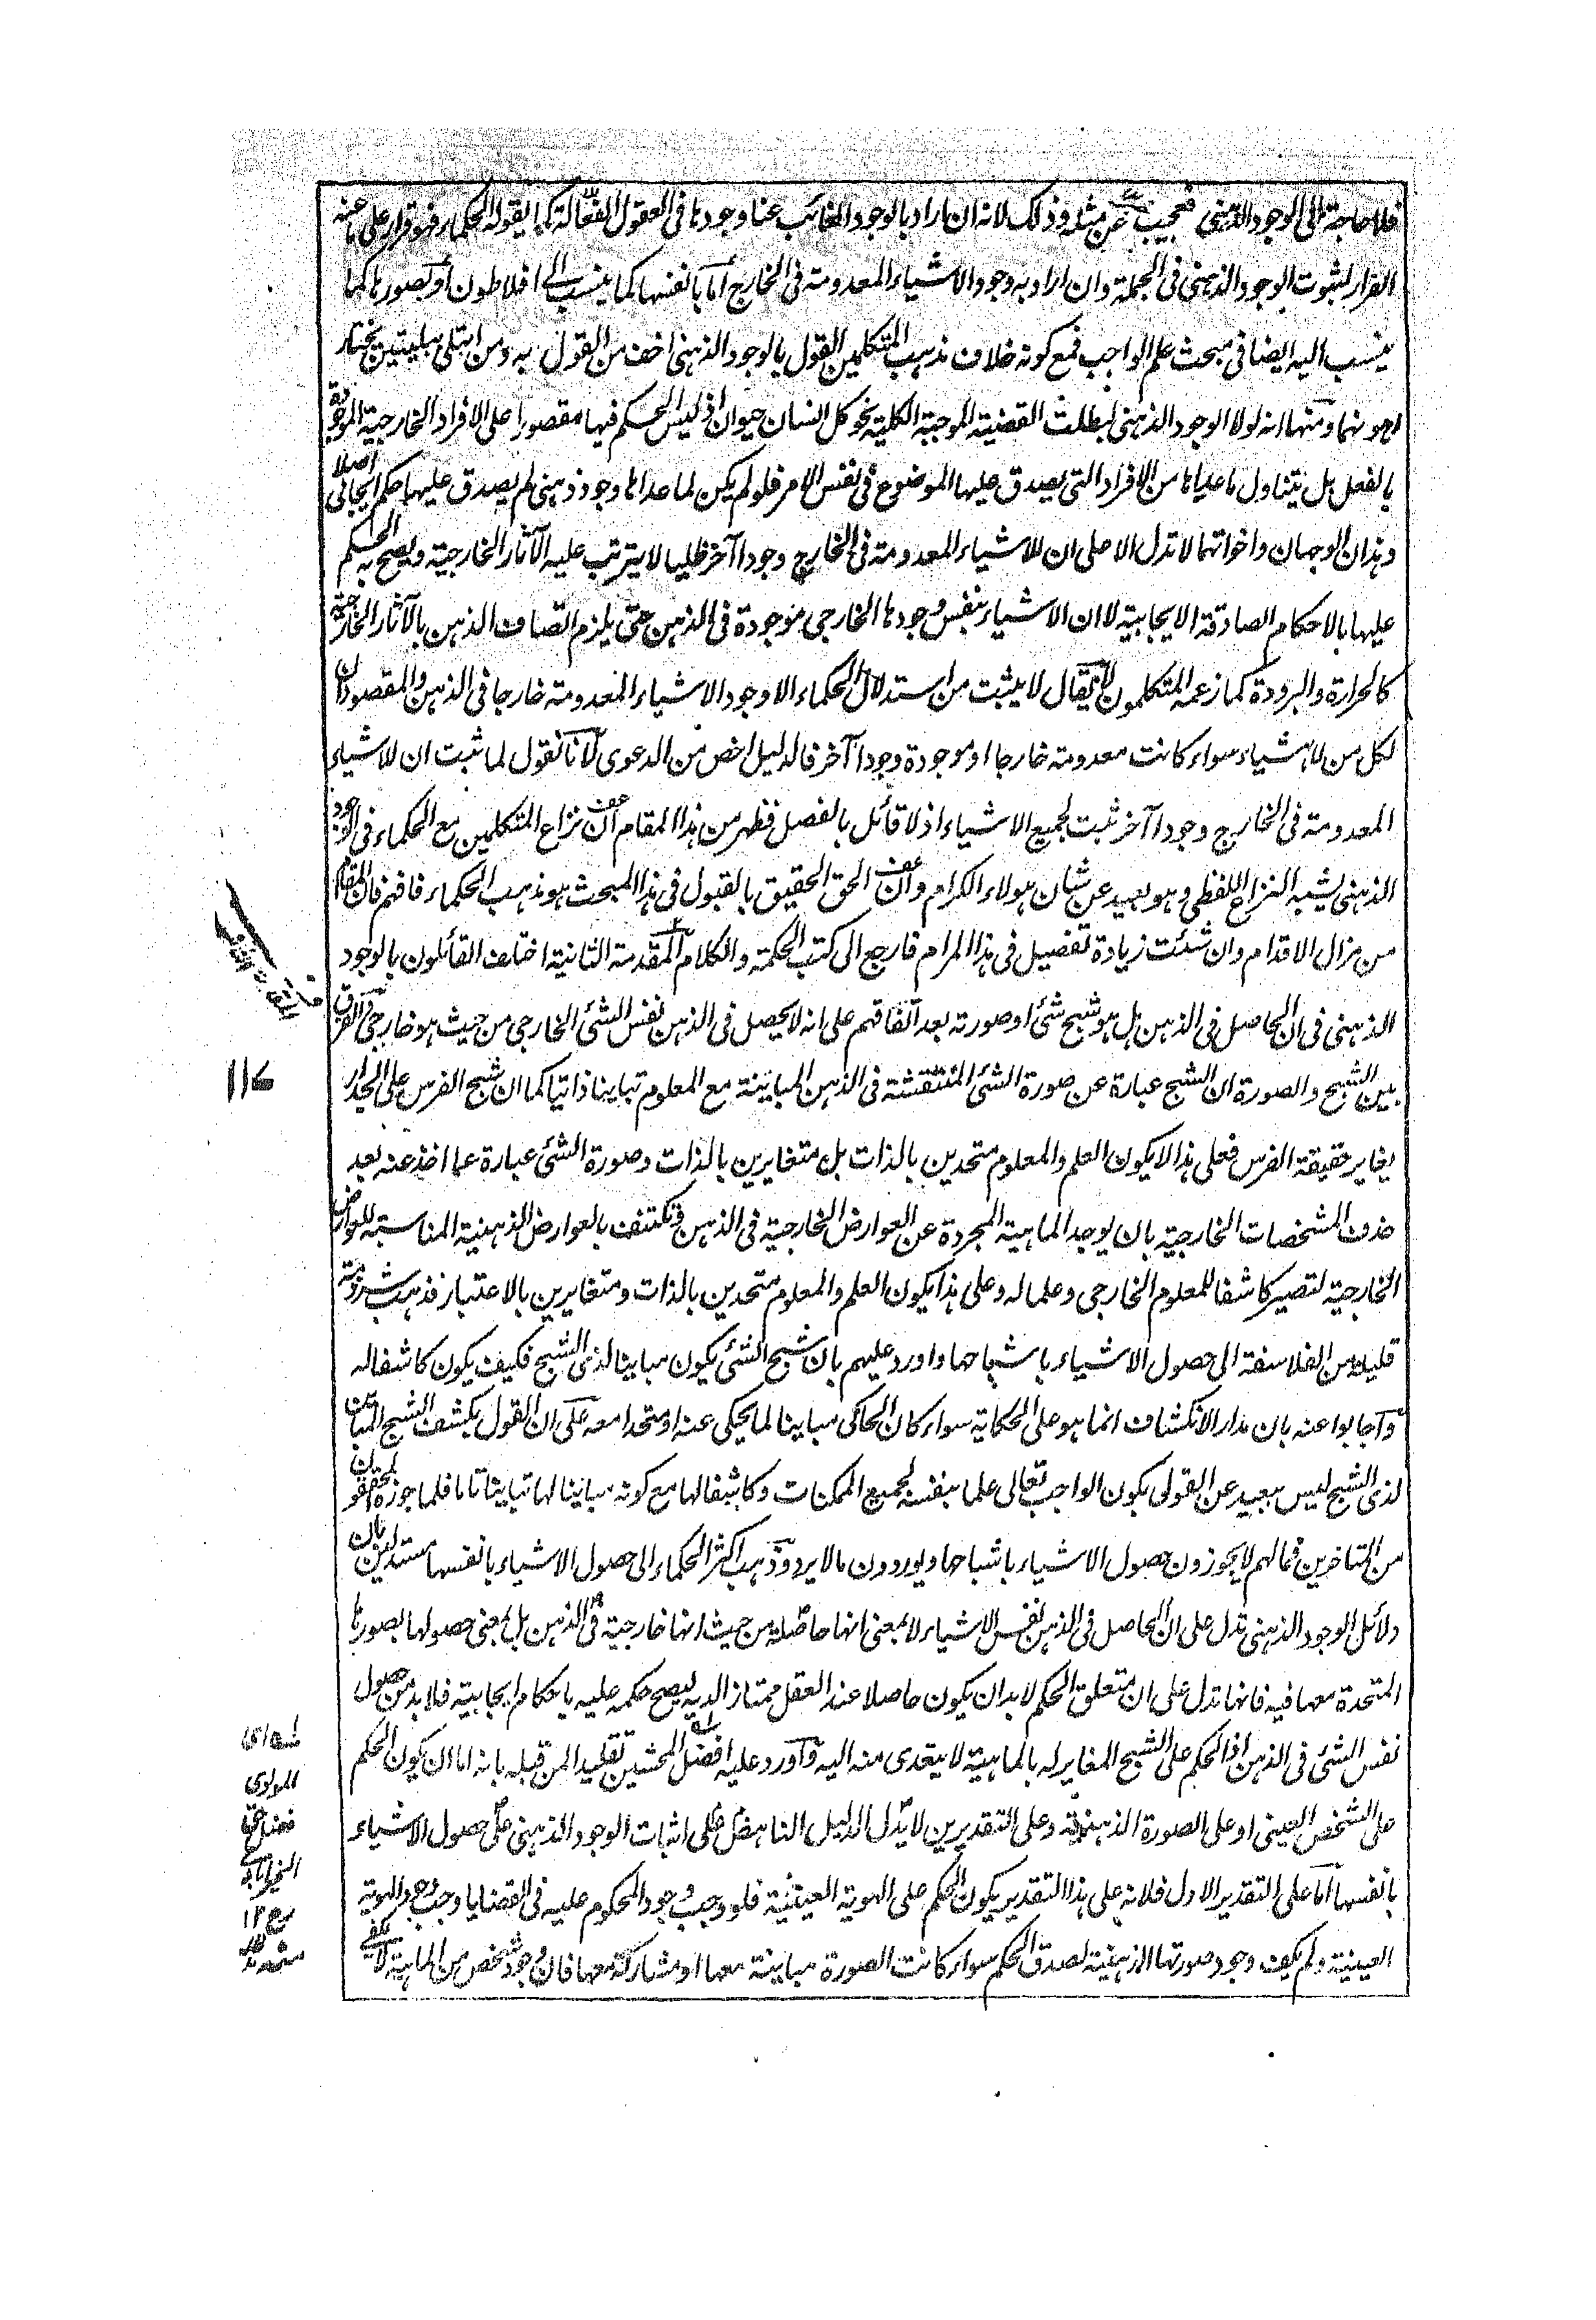 فلا حاجة الى الوجود الذهنى فعجيب عن مثله وذلك لانه ان اراد بالوجود الغائب عنا وجودها فى العقول الفعّالة كما يقوله الحكماء فهو قرار على ما عنه
الفرار لثبوت الوجود الذهنى فى الجملة وان اراد به وجود الاشياء المعدومة فى الخارج اما بانفسها كما ينسب الى افلاطون او بصورها كما
ينسب اليه ايضا فى مبحث علم الواجب فمع كونه خلاف مذهب المتكلمين القول بالوجود الذهنى اخف من القول به ومن ابتلى ببليتين يختار
اهونهما ومنها انه لولا الوجود الذهنى لبطلت القضية الموجبة الكلية نحو كل انسان حيوان اذ ليس الحكم فيها مقصورا على الافراد الخارجية الموجودة
بالفعل بل يتناول ما عداها من الافراد التى يصدق عليها الموضوع فى نفس الامر فلو لم يكن لما عداها وجود ذهنى لم يصدق عليها حكم ايجابى اصلا
وهذان الوجهان واخواتهما لا تدل الا على ان للاشياء المعدومة فى الخارج وجودا آخر ظليا لا يترتب عليه الآثار الخارجية ويصح به الحكم
عليها بالاحكام الصادقة الايجابية لا ان الاشياء بنفس وجودها الخارجى موجودة فى الذهن حتى يلزم اتصاف الذهن بالآثار الخارجية
كالحرارة والبرودة كما زعمه المتكلمون لا يقال لا يثبت من استدلال الحكماء الا وجود الاشياء المعدومة خارجا فى الذهن والمقصود ان
لكل من الاشياء سواء كانت معدومة خارجا او موجودة وجودا آخر فالدليل اخص من الدعوى لانا نقول لما ثبت ان للاشياء
المعدومة فى الخارج وجودا آخر ثبت لجميع الاشياء اذ لا قائل بالفصل فظهر من هذا المقام ان نزاع المتكلمين مع الحكماء فى الوجود
الذهنى يشبه النزاع اللفظى وهو بعيد عن شان هولاء الكرام وان الحق الحقيق بالقبول فى هذا المبحث هو مذهب الحكماء فافهم فان المقام
من مزال الاقدام وان شئت زيادة تفصيل فى هذا المرام فارجع الى كتب الحكمة والكلام المقدمة الثانية اختلف القائلون بالوجود
الذهنى فى ان الحاصل فى الذهن هل هو شبح شئ او صورته بعد اتفاقهم على انه لا يحصل فى الذهن نفس الشئ الخارجى من حيث هو خارجى والفرق
بين الشبح والصورة ان الشبح عبارة عن صورة الشئ المنتقشة فى الذهن المباينة مع المعلوم تباينا ذاتيا كما ان شبح الفرس على الجدار
يغاير حقيقة الفرس فعلى هذا لا يكون العلم والمعلوم متحدين بالذات بل متغايرين بالذات وصورة الشئ عبارة عما اخذ عنه بعد
حذف المشخصات الخارجية بان يوجد الماهية المجردة عن العوارض الخارجية فى الذهن فتكتنف بالعوارض الذهنية المناسبة للعوارض
الخارجية لتصير كاشفا للمعلوم الخارجى وعلما له وعلى هذا يكون العلم والمعلوم متحدين بالذات ومتغايرين بالاعتبار فذهب شرذمة
قليلة من الفلاسفة الى حصول الاشياء باشباحها واورد عليهم بان شبح الشئ يكون مباينا لذى الشبح فكيف يكون كاشفا له
واجابوا عنه بان مدار الانكشاف انما هو على الحكاية سواء كان الحاكى مباينا لما يحكى عنه او متحدا معه على ان القول بكشف الشبح المباين
لذى الشبح ليس ببعيد عن القول بكون الواجب تعالى علما بنفسه لجميع الممكنات وكاشفا لها مع كونه مباينا لها تباينا تاما فلما جوزه المحققون
من المتاخرين فما لهم لا يجوزون حصول الاشياء باشباحها ويوردون ما لا يرد وذهب اكثر الحكماء الى حصول الاشياء بانفسها مستدلين بان
دلائل الوجود الذهنى تدل على ان الحاصل فى الذهن نفس الاشياء لا بمعنى انها حاصلة من حيث انها خارجية فى الذهن بل بمعنى حصولها بصورها
المتحدة معها فيه فانها تدل على ان متعلق الحكم لا بد ان يكون حاصلا عند العقل ممتازا لديه ليصح حكمه عليه باحكام ايجابية فلا بد من حصول
نفس الشئ فى الذهن اذ الحكم على الشبح المغاير له بالماهية لا يتعدى منه اليه واورد عليه افضل المحشين تقليدا لمن قبله بانه اما ان يكون الحكم
على الشخص العينى او على الصورة الذهنية وعلى التقديرين لا يدل الدليل الناهض على اثبات الوجود الذهنى على حصول الاشياء
بانفسها اما على التقدير الاول فلانه على هذا التقدير يكون الحكم على الهوية العينية فلو وجب وجود المحكوم عليه فى القضايا وجب وجود الهوية
العينية ولم يكف وجود صورتها الذهنية لصدق الحكم سواء كانت الصورة مباينة معها او مشاركة معها فان وجود شخص من الماهية لا يكفى
المقدمة الثانية
١١٧
له اى
المولوى
فضل حق
الخيرابادى
١٢
منه